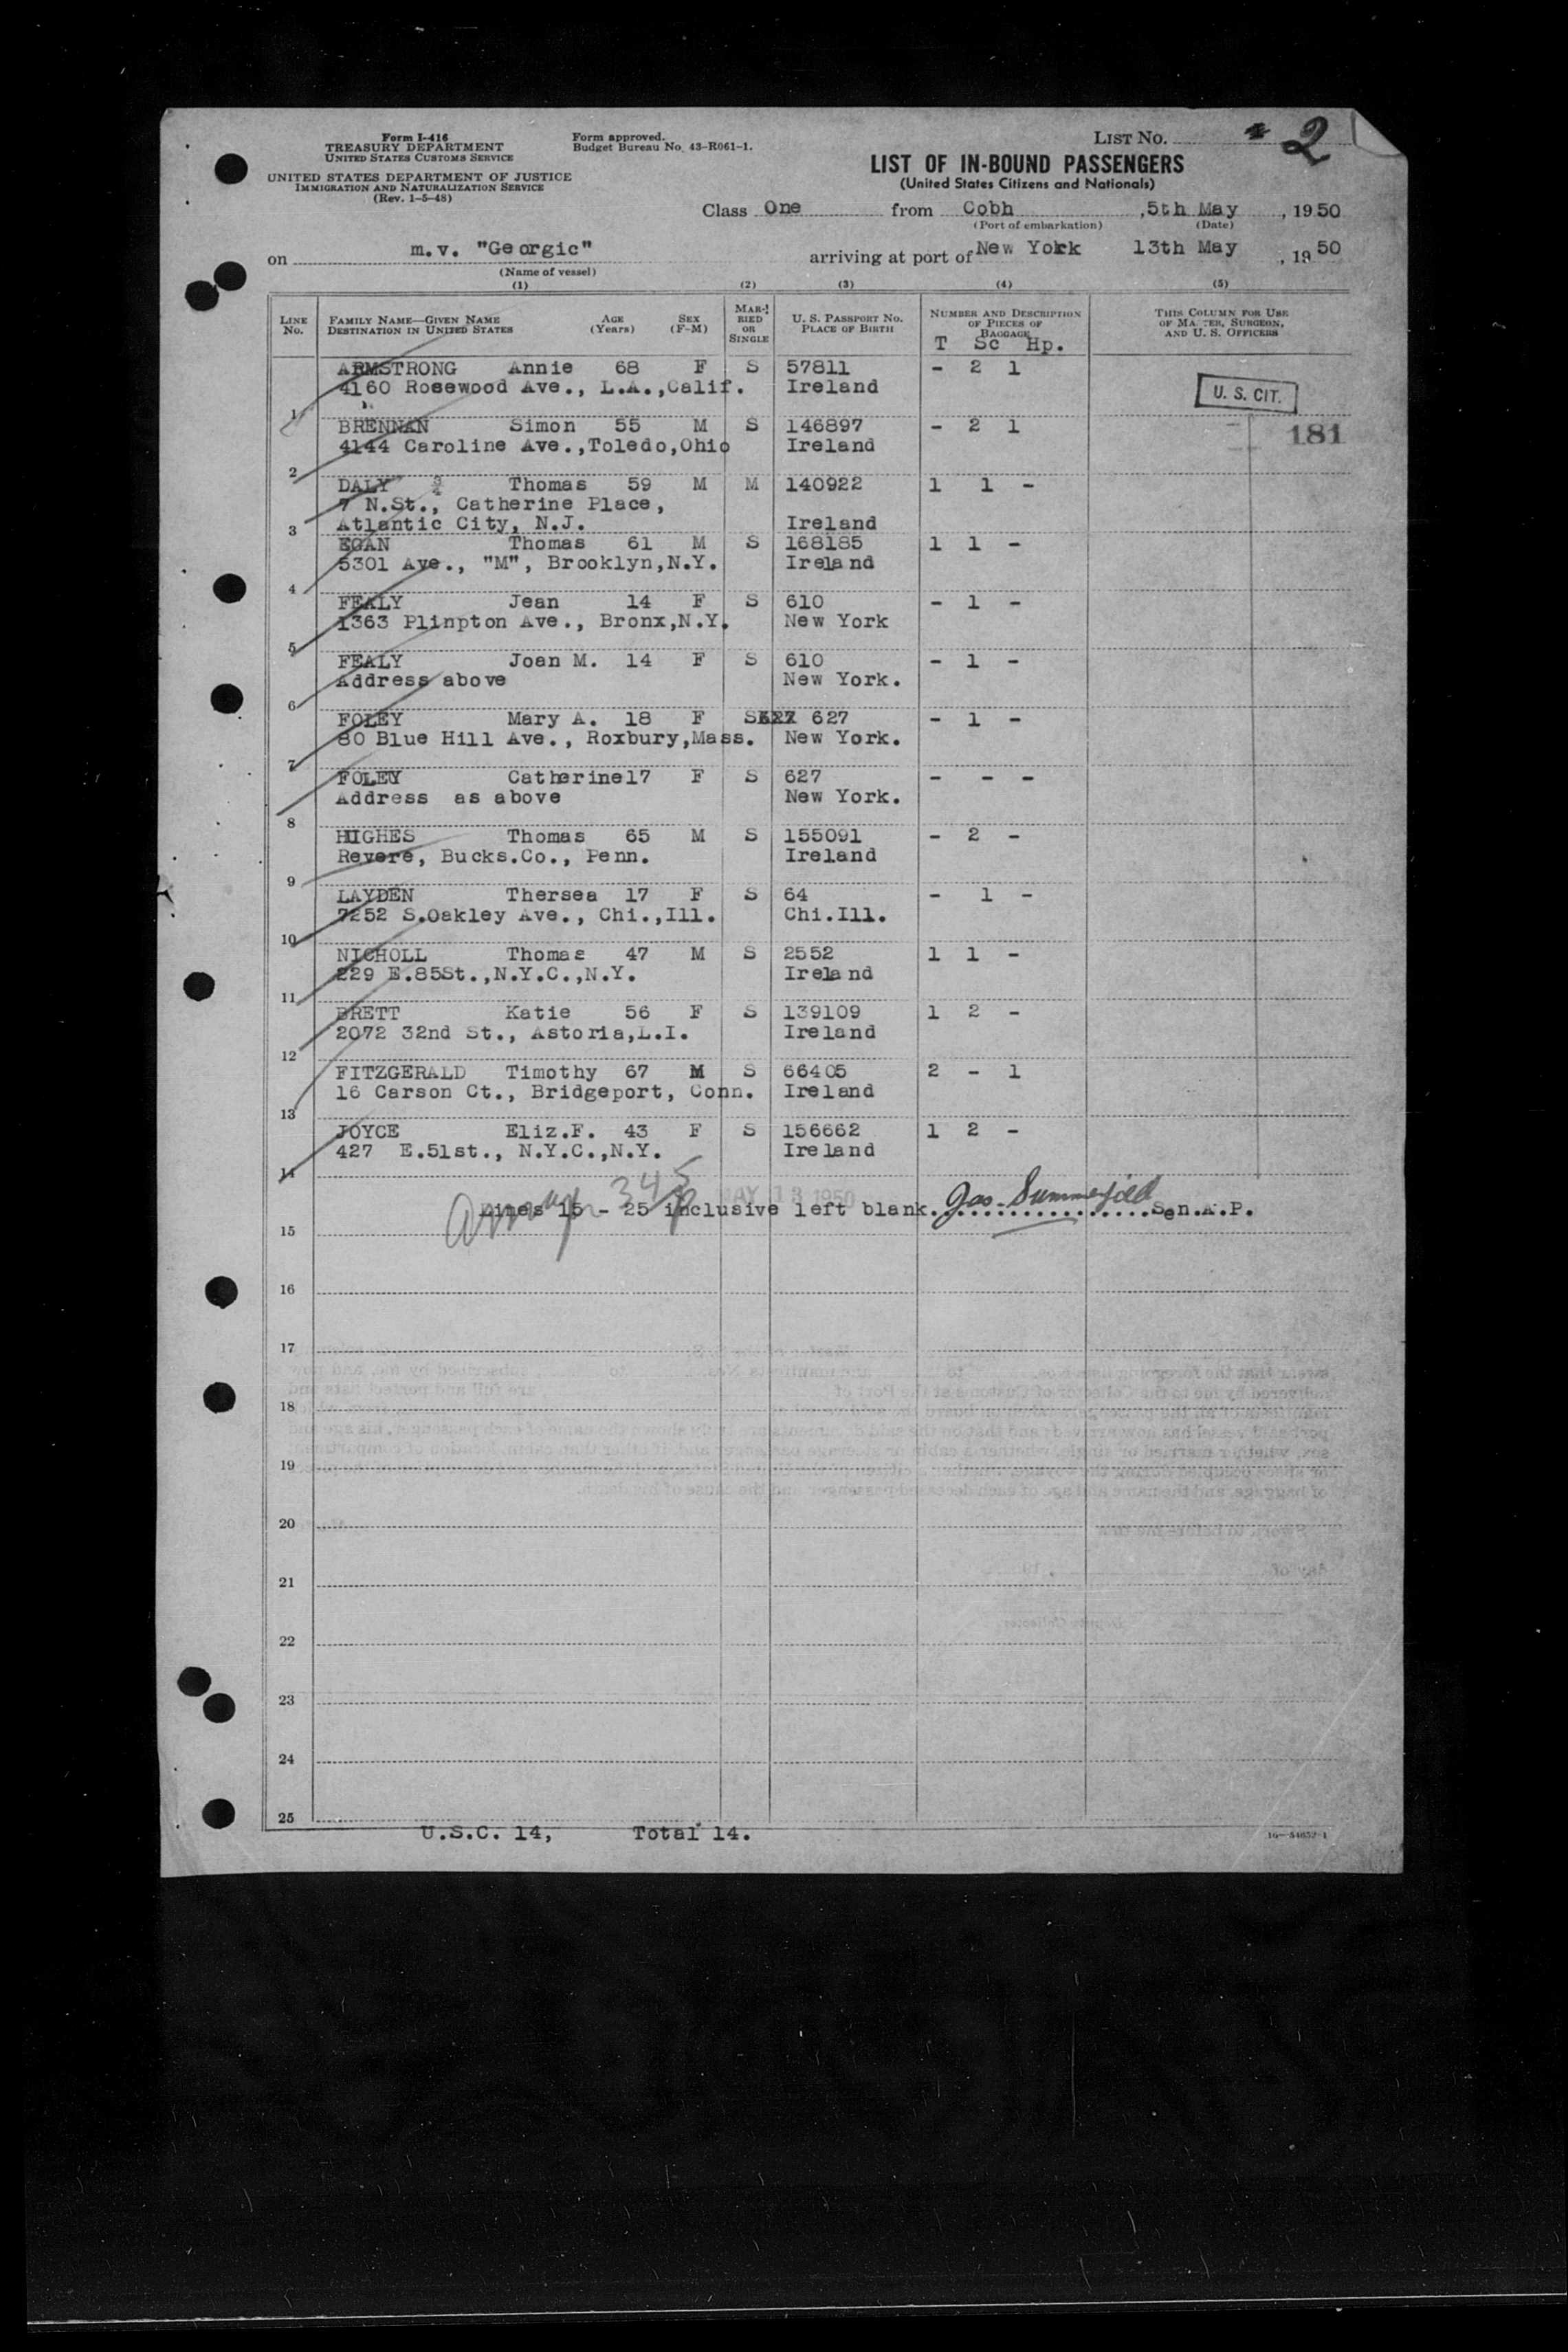 Form I-416
TREASURY DEPARTMENT
UNITED STATES CUSTOMS SERVICE
UNITED STATES DEPARTMENT OF JUSTICE
IMMIGRATION AND NATURALIZATION SERVICE
(Rev. 1-5-48)
Form approved.
Budget Bureau No. 43-R061-1.
LIST No. 2
LIST OF IN-BOUND PASSENGERS
(United States Citizens and Nationals)
Class One from Cobh ,5th May , 1950
(Port of embarkation) (Date)
on m.v. "Georgic" arriving at port of New York 13th May , 1950
(Name of vessel)
(1) (2) (3) (4) (5)
LINE No. FAMILY NAME—GIVEN NAME DESTINATION IN UNITED STATES AGE (Years) SEX (F-M) MARRIED OR SINGLE U. S. PASSPORT NO. PLACE OF BIRTH NUMBER AND DESCRIPTION OF PIECES OF BAGGAGE THIS COLUMN FOR USE OF MASTER, SURGEON, AND U. S. OFFICERS
T Sc Hp.
ARMSTRONG Annie 68 F S 57811 - 2 1
4160 Rosewood Ave., L.A.,Calif. Ireland
U. S. CIT.
1
BRENNAN Simon 55 M S 146897 - 2 1 181
4144 Caroline Ave.,Toledo,Ohio Ireland
2
DALY Thomas 59 M M 140922 1 1 -
7 N.St., Catherine Place,
Atlantic City, N.J. Ireland
3
EGAN Thomas 61 M S 168185 1 1 -
5301 Ave., "M", Brooklyn,N.Y. Ireland
4
FEALY Jean 14 F S 610 - 1 -
1363 Plinpton Ave., Bronx,N.Y. New York
5
FEALY Joan M. 14 F S 610 - 1 -
Address above New York.
6
FOLEY Mary A. 18 F S 627 - 1 -
80 Blue Hill Ave., Roxbury,Mass. New York.
7
FOLEY Catherine17 F S 627 - - -
Address as above New York.
8
HUGHES Thomas 65 M S 155091 - 2 -
Revere, Bucks.Co., Penn. Ireland
9
LAYDEN Thersea 17 F S 64 - 1 -
7252 S.Oakley Ave., Chi.,Ill. Chi.Ill.
10
NICHOLL Thomas 47 M S 2552 1 1 -
229 E.85St.,N.Y.C.,N.Y. Ireland
11
BRETT Katie 56 F S 139109 1 2 -
2072 32nd St., Astoria,L.I. Ireland
12
FITZGERALD Timothy 67 M S 66405 2 - 1
16 Carson Ct., Bridgeport, Conn. Ireland
13
JOYCE Eliz.F. 43 F S 156662 1 2 -
427 E.51st., N.Y.C.,N.Y. Ireland
14
MAY 13 1950
Lines 15 - 25 inclusive left blank. Jas. Summerfield Sen.A.P.
15
16
17
18
19
20
21
22
23
24
25
U.S.C. 14, Total 14.